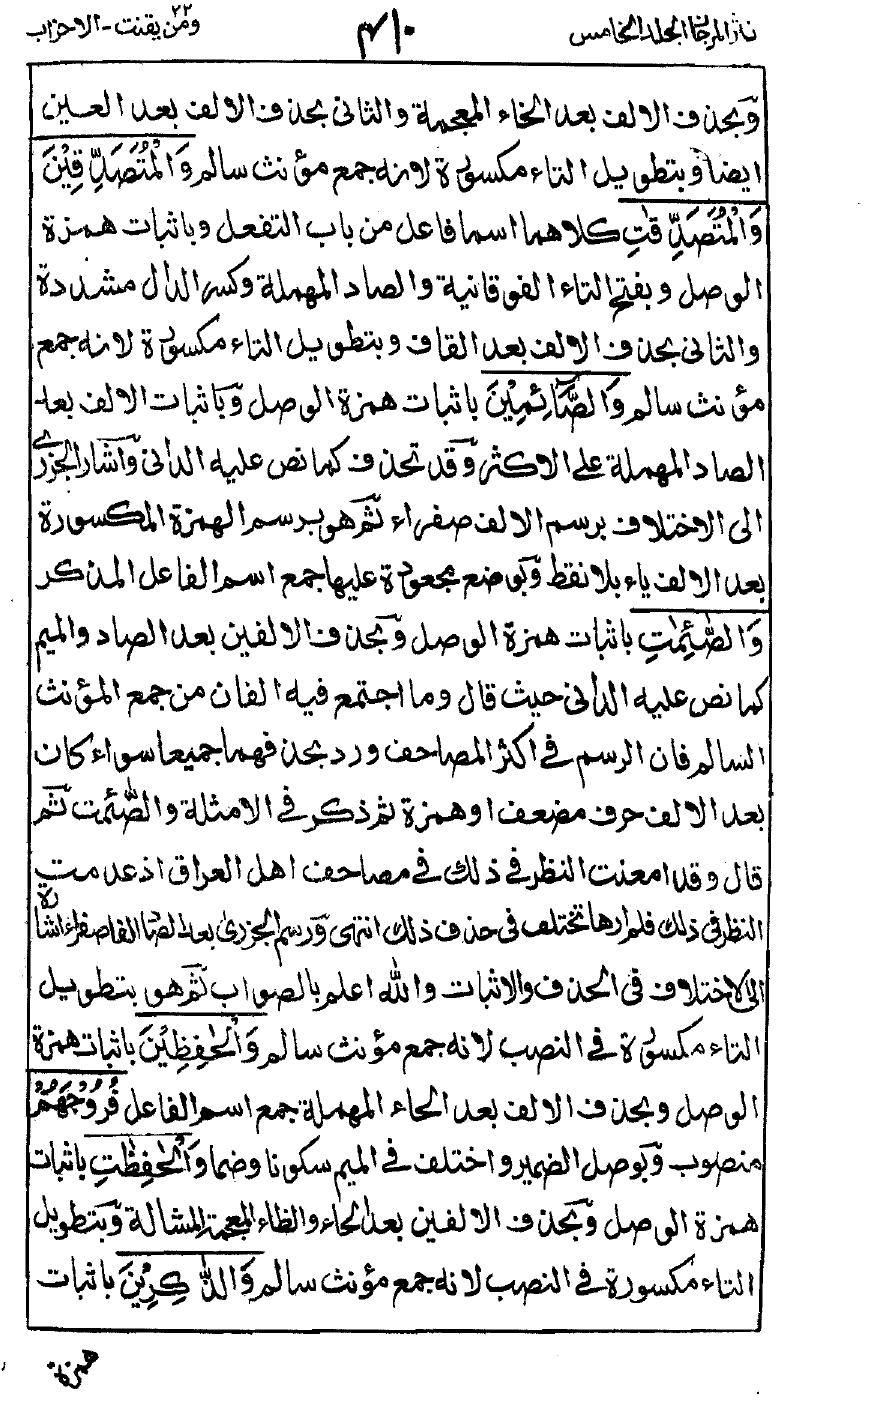 نثر المرجان المجلد الخامس
٤١٠
ومن يقنت ٢٢ - الاحزاب
وَّبحذف الالف بعد الخاء المعجمة والثانى بحذف الالف بعد العين
ايضا وبتطويل التاء مكسورة لانه جمع مؤنث سالم وَالْمُتَصَدِّقِيْنَ
وَالْمُتَصَدِّقٰتِ كلاهما اسما فاعل من باب التفعل وباثبات همزة
الوصل وبفتح التاء الفوقانية والصاد المهملة وكسر الدال مشددة
والثانى بحذف الالف بعد القاف وبتطويل التاء مكسورة لانه جمع
مؤنث سالم وَالصَّآئِمِيْنَ باثبات همزة الوصل وَّباثبات الالف بعد
الصاد المهملة على الاكثر وَّقد تحذف كما نص عليه الدانى وَّاشار الجزرى
الى الاختلاف برسم الالف صفراء ثم هو برسم الهمزة المكسورة
بعد الالف ياء بلا نقط وَّبوضع مجعودة عليها جمع اسم الفاعل المذكر
وَالصّٰٓئِمٰتِ باثبات همزة الوصل وَّبحذف الالفين بعد الصاد والميم
كما نص عليه الدانى حيث قال وما اجتمع فيه الفان من جمع المؤنث
السالم فان الرسم فى اكثر المصاحف ورد بحذفهما جميعا سواء كان
بعد الالف حرف مضعف او همزة ثم ذكر فى الامثلة والصّٰٓئمت ثم
قال وقد امعنت النظر فى ذلك فى مصاحف اهل العراق اذ عدمت
النظر فى ذلك فلم ارها تختلف فى حذف ذلك انتهى وَّرسم الجزرى بعد الصاد الفا صفراء اشارة
الى الاختلاف فى الحذف والاثبات والله اعلم بالصواب ثم هو بتطويل
التاء مكسورة فى النصب لانه جمع مؤنث سالم وَالْحٰفِظِيْنَ باثبات همزة
الوصل وبحذف الالف بعد الحاء المهملة جمع اسم الفاعل فُرُوْجَهُمْ
منصوب وَّبوصل الضمير واختلف فى الميم سكونا وضما وَالْحٰفِظٰتِ باثبات
همزة الوصل وَّبحذف الالفين بعد الحاء والظاء المعجمة المشالة وَّبتطويل
التاء مكسورة فى النصب لانه جمع مؤنث سالم وَالذّٰكِرِيْنَ باثبات
همزة